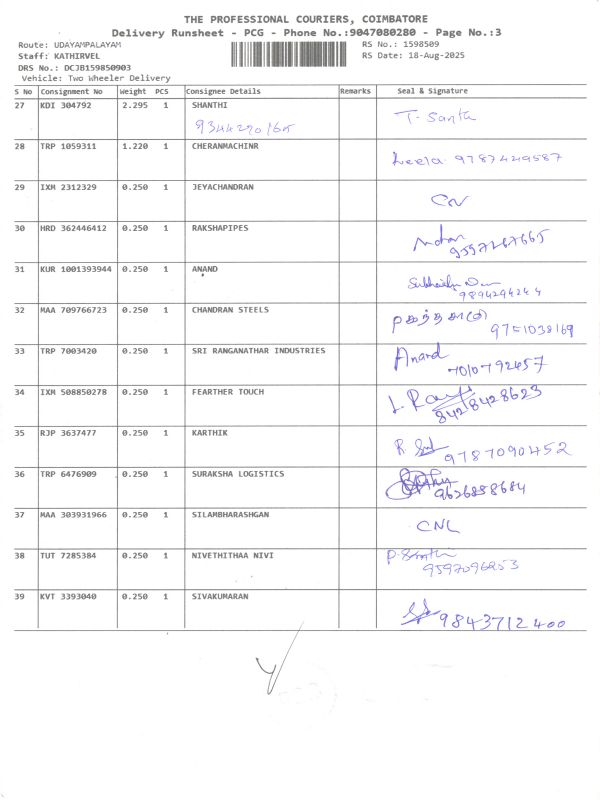 THE PROFESSIONAL COURIERS, COIMBATORE
Delivery Runsheet - PCG - Phone No.:9047080280 - Page No.:3
Route: UDAYAMPALAYAM RS No.: 1598509
Staff: KATHIRVEL RS Date: 18-Aug-2025
DRS No.: DCJB159850903
Vehicle: Two Wheeler Delivery
S No Consignment No Weight PCS Consignee Details Remarks Seal & Signature
27 KDI 304792 2.295 1 SHANTHI T. Santh
28 TRP 1059311 1.220 1 CHERANMACHINR Leela 9787449587
29 IXM 2312329 0.250 1 JEYACHANDRAN
30 HRD 362446412 0.250 1 RAKSHAPIPES
31 KUR 1001393944 0.250 1 ANAND 9894294244
32 MAA 709766723 0.250 1 CHANDRAN STEELS
33 TRP 7003420 0.250 1 SRI RANGANATHAR INDUSTRIES Anand 7010792457
34 IXM 508850278 0.250 1 FEARTHER TOUCH 8428428623
35 RJP 3637477 0.250 1 KARTHIK 9787090452
36 TRP 6476909 0.250 1 SURAKSHA LOGISTICS 9626858684
37 MAA 303931966 0.250 1 SILAMBHARASHGAN CNL
38 TUT 7285384 0.250 1 NIVETHITHAA NIVI
39 KVT 3393040 0.250 1 SIVAKUMARAN 9843712400